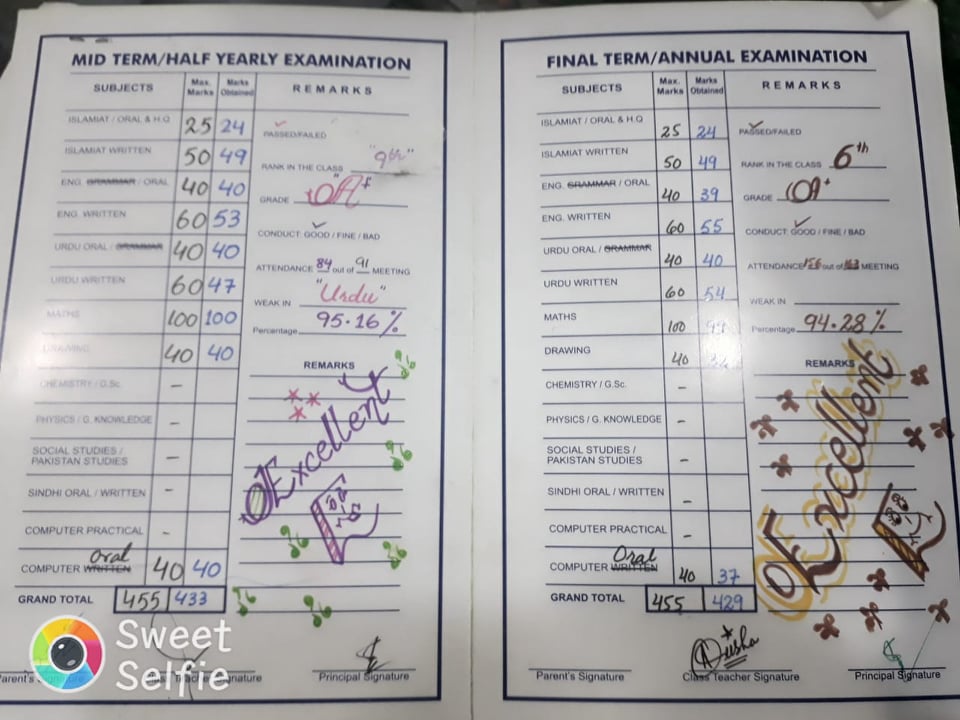 MID TERM/HALF YEARLY EXAMINATION
SUBJECTS Max. Marks Marks Obtained REMARKS
ISLAMIAT / ORAL & H.Q 25 24
PASSED/FAILED
ISLAMIAT WRITTEN 50 49
RANK IN THE CLASS "9th"
ENG. GRAMMAR / ORAL 40 40
GRADE "A+"
ENG. WRITTEN 60 53
CONDUCT: GOOD / FINE / BAD
URDU ORAL / GRAMMAR 40 40
ATTENDANCE 84 out of 91 MEETING
URDU WRITTEN 60 47
WEAK IN "Urdu"
MATHS 100 100
Percentage 95.16%
DRAWING 40 40
REMARKS
CHEMISTRY / G.Sc. -
PHYSICS / G. KNOWLEDGE -
Excellent
SOCIAL STUDIES / PAKISTAN STUDIES -
SINDHI ORAL / WRITTEN -
COMPUTER PRACTICAL -
Oral
COMPUTER WRITTEN 40 40
GRAND TOTAL 455 433
Parent's Signature Class Teacher Signature Principal Signature
Sweet
Selfie
FINAL TERM/ANNUAL EXAMINATION
SUBJECTS Max. Marks Marks Obtained REMARKS
ISLAMIAT / ORAL & H.Q 25 24
PASSED/FAILED
ISLAMIAT WRITTEN 50 49
RANK IN THE CLASS 6th
ENG. GRAMMAR / ORAL 40 39
GRADE A+
ENG. WRITTEN 60 55
CONDUCT: GOOD / FINE / BAD
URDU ORAL / GRAMMAR 40 40
ATTENDANCE 156 out of 163 MEETING
URDU WRITTEN 60 54
WEAK IN
MATHS 100
Percentage 94.28%
DRAWING 40
REMARKS
CHEMISTRY / G.Sc. -
PHYSICS / G. KNOWLEDGE -
Excellent
SOCIAL STUDIES / PAKISTAN STUDIES -
SINDHI ORAL / WRITTEN -
COMPUTER PRACTICAL -
Oral
COMPUTER WRITTEN 40 37
GRAND TOTAL 455 429
Parent's Signature Class Teacher Signature Principal Signature